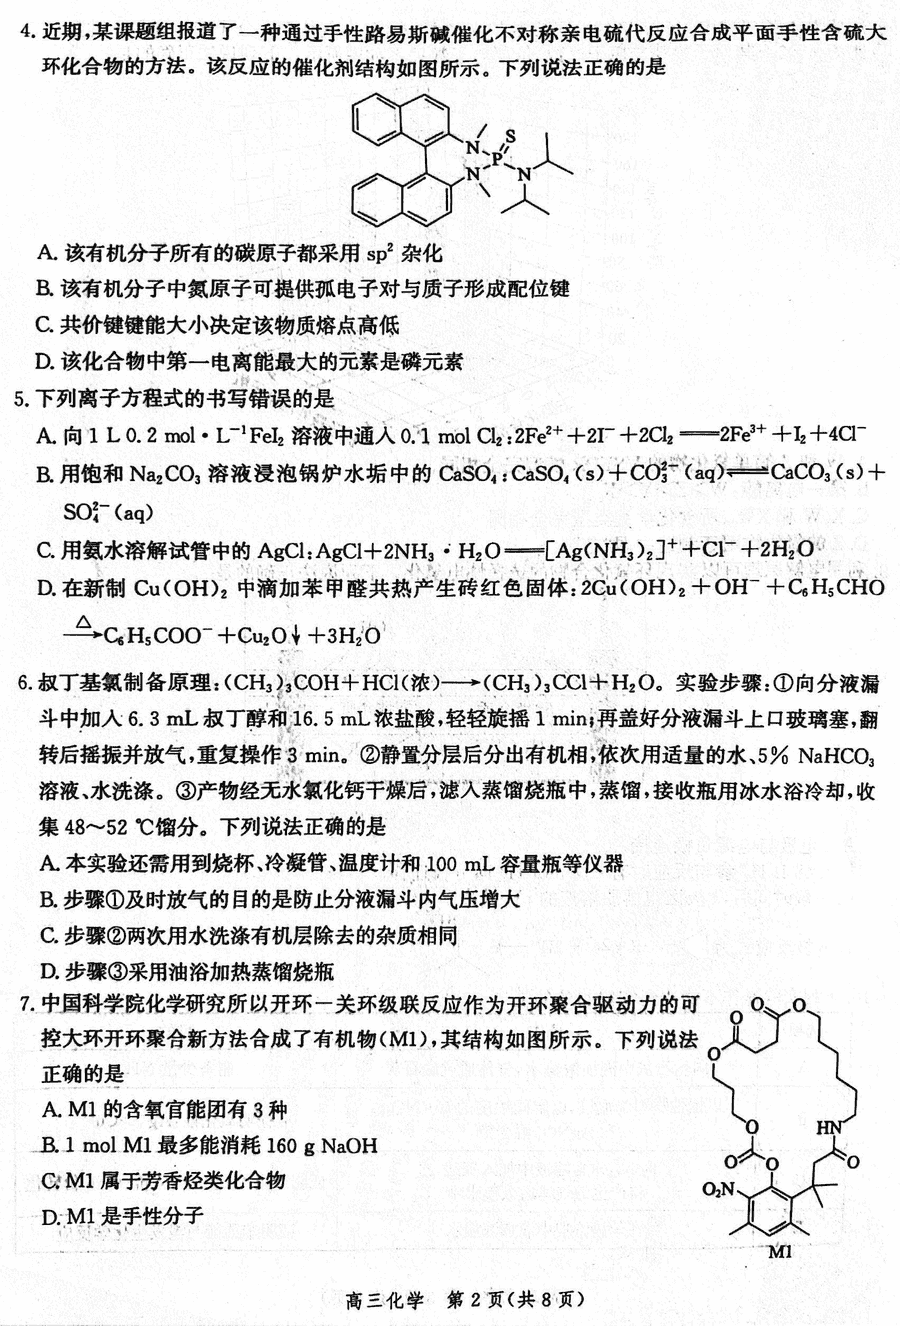 4. 近期,某课题组报道了一种通过手性路易斯碱催化不对称亲电硫代反应合成平面手性含硫大
环化合物的方法。该反应的催化剂结构如图所示。下列说法正确的是
N
S
P
N
N
A. 该有机分子所有的碳原子都采用 sp² 杂化
B. 该有机分子中氮原子可提供孤电子对与质子形成配位键
C. 共价键键能大小决定该物质熔点高低
D. 该化合物中第一电离能最大的元素是磷元素
5. 下列离子方程式的书写错误的是
A. 向 1 L 0.2 mol·L⁻¹FeI₂ 溶液中通入 0.1 mol Cl₂:2Fe²⁺+2I⁻+2Cl₂══2Fe³⁺+I₂+4Cl⁻
B. 用饱和 Na₂CO₃ 溶液浸泡锅炉水垢中的 CaSO₄:CaSO₄(s)+CO₃²⁻(aq)⇌CaCO₃(s)+
SO₄²⁻(aq)
C. 用氨水溶解试管中的 AgCl:AgCl+2NH₃·H₂O══[Ag(NH₃)₂]⁺+Cl⁻+2H₂O
D. 在新制 Cu(OH)₂ 中滴加苯甲醛共热产生砖红色固体:2Cu(OH)₂+OH⁻+C₆H₅CHO
△→C₆H₅COO⁻+Cu₂O↓+3H₂O
6. 叔丁基氯制备原理:(CH₃)₃COH+HCl(浓)→(CH₃)₃CCl+H₂O。实验步骤:①向分液漏
斗中加入 6.3 mL 叔丁醇和 16.5 mL 浓盐酸,轻轻旋摇 1 min;再盖好分液漏斗上口玻璃塞,翻
转后摇振并放气,重复操作 3 min。②静置分层后分出有机相,依次用适量的水、5% NaHCO₃
溶液、水洗涤。③产物经无水氯化钙干燥后,滤入蒸馏烧瓶中,蒸馏,接收瓶用冰水浴冷却,收
集 48～52 ℃馏分。下列说法正确的是
A. 本实验还需用到烧杯、冷凝管、温度计和 100 mL 容量瓶等仪器
B. 步骤①及时放气的目的是防止分液漏斗内气压增大
C. 步骤②两次用水洗涤有机层除去的杂质相同
D. 步骤③采用油浴加热蒸馏烧瓶
7. 中国科学院化学研究所以开环－关环级联反应作为开环聚合驱动力的可
控大环开环聚合新方法合成了有机物(M1),其结构如图所示。下列说法
正确的是
A. M1 的含氧官能团有 3 种
B. 1 mol M1 最多能消耗 160 g NaOH
C. M1 属于芳香烃类化合物
D. M1 是手性分子
O
O
O
O
O
HN
O
O
O
O₂N
M1
高三化学 第 2 页(共 8 页)